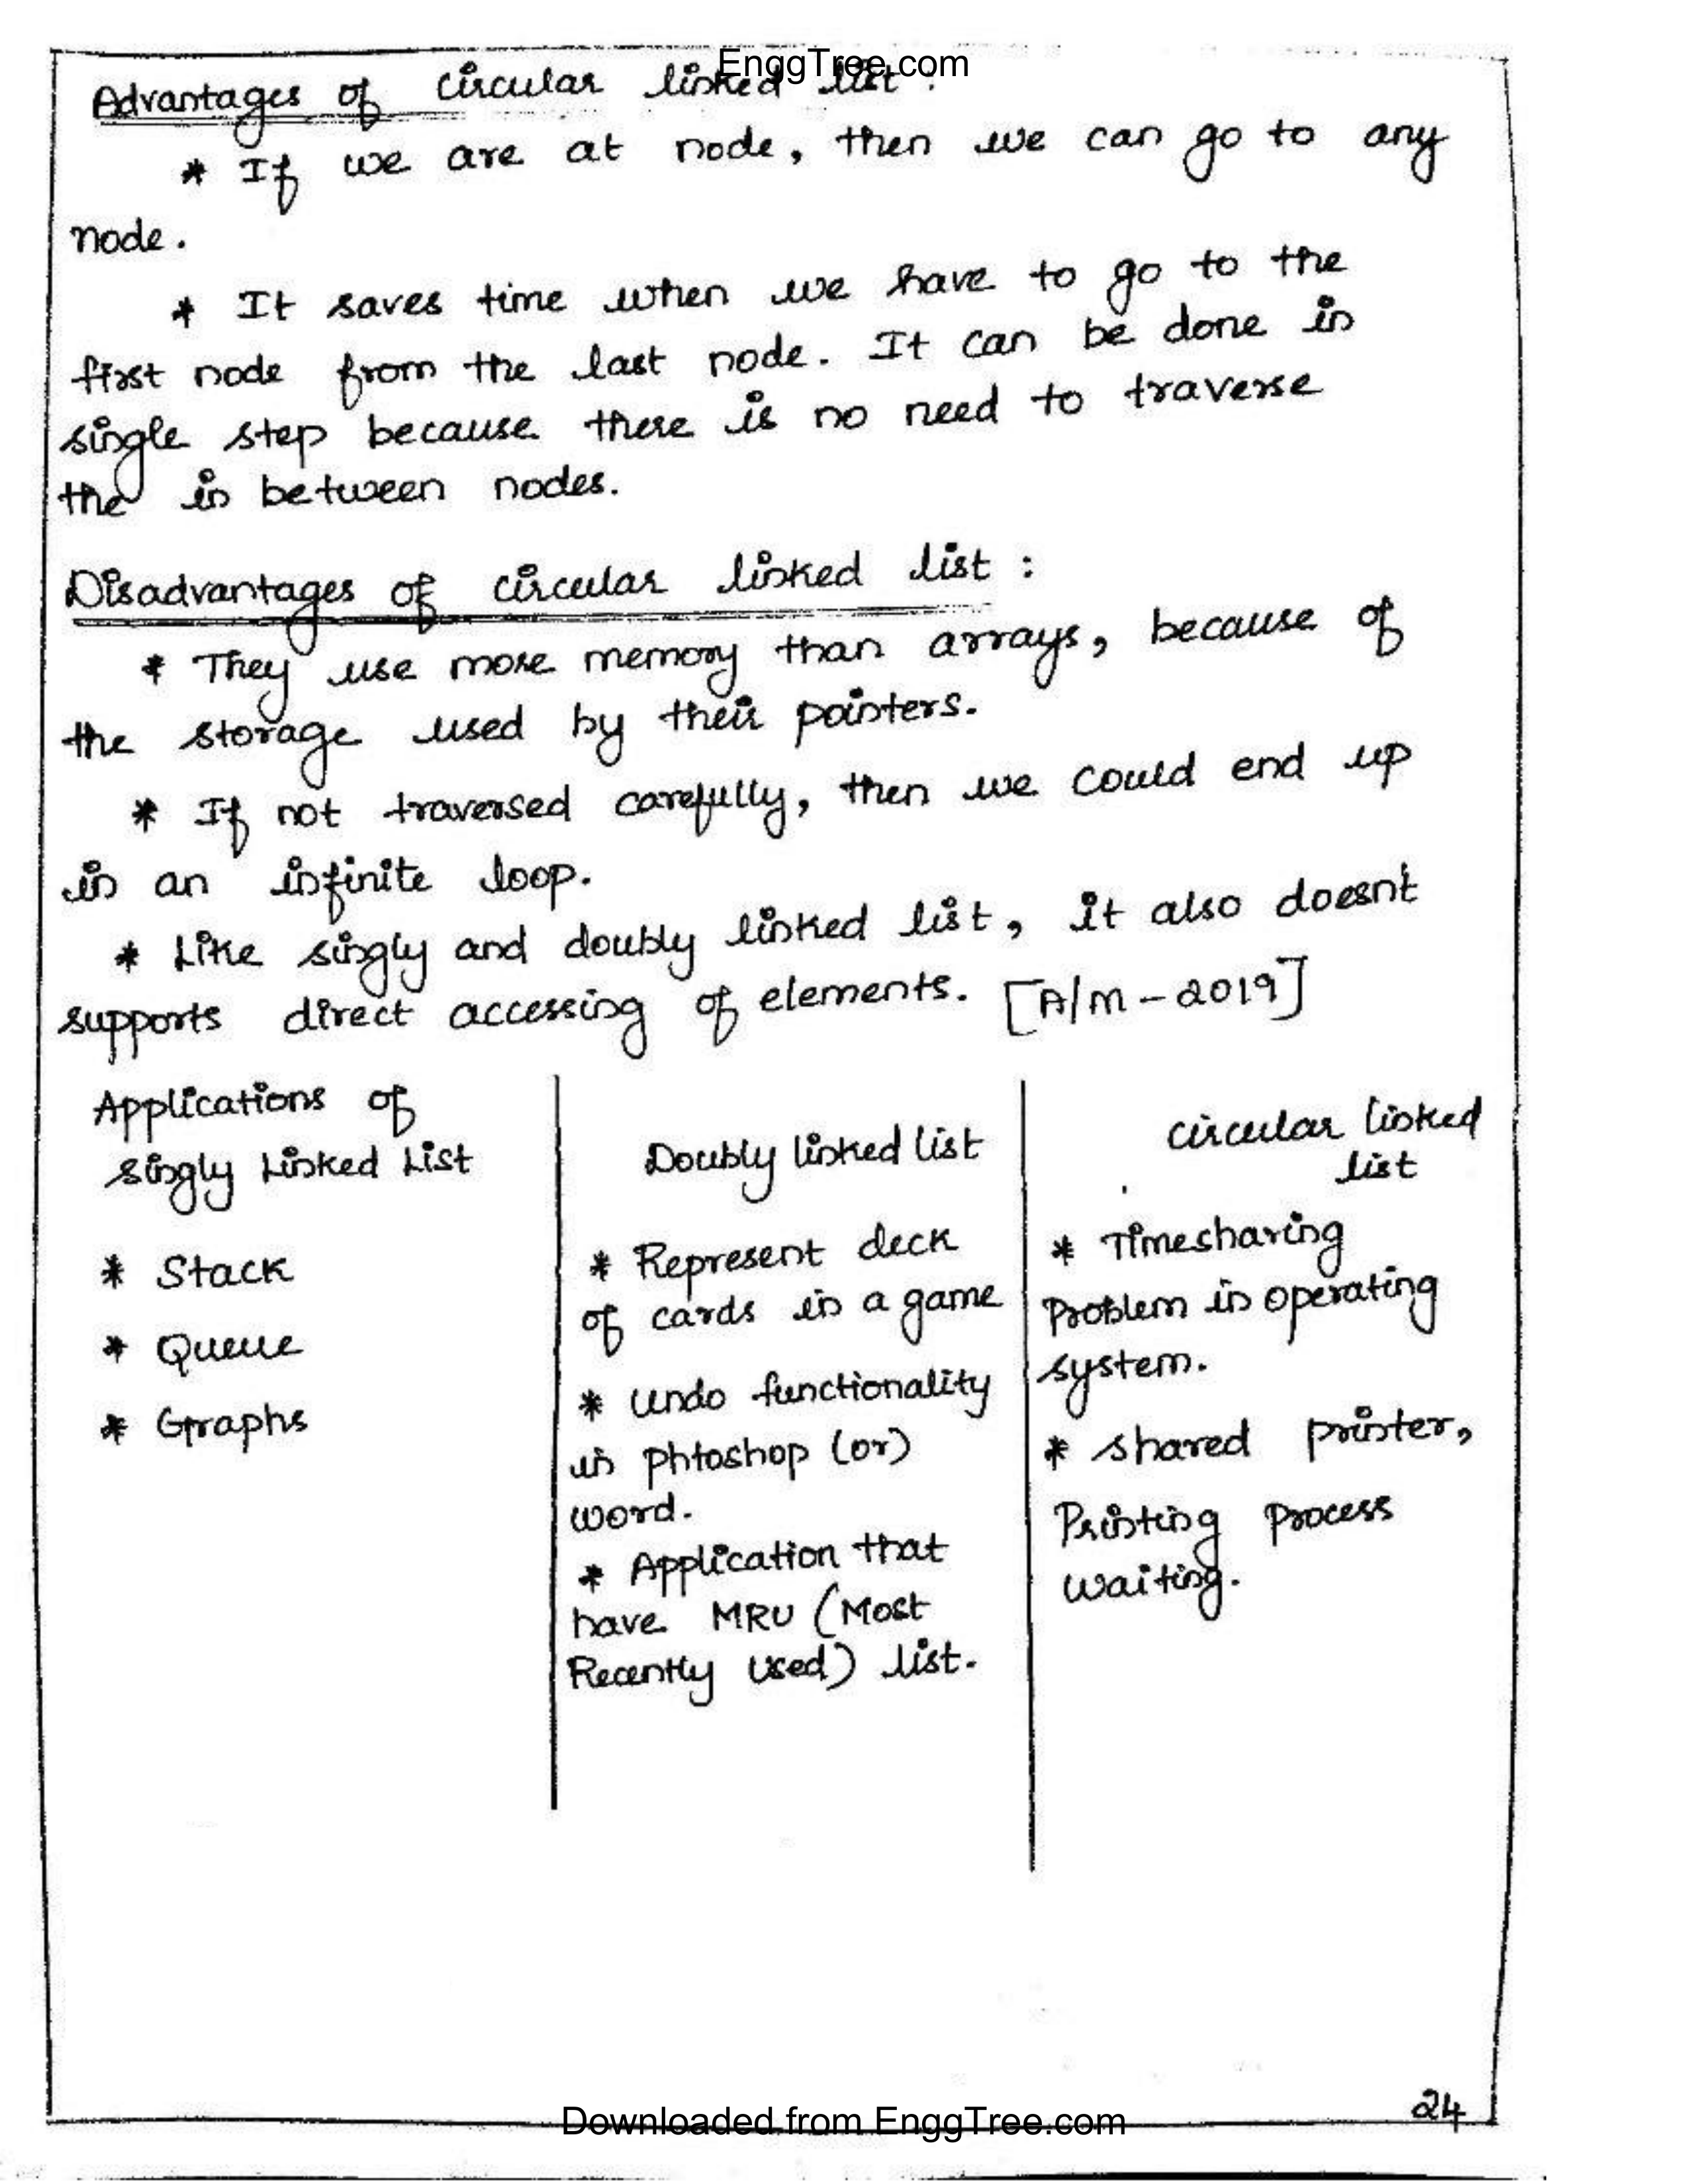 EnggTree.com
Advantages of circular linked list :
* If we are at node, then we can go to any
node.
* It saves time when we have to go to the
first node from the last node. It can be done in
single step because there is no need to traverse
the in between nodes.
Disadvantages of circular linked list :
* They use more memory than arrays, because of
the storage used by their pointers.
* If not traversed carefully, then we could end up
in an infinite loop.
* Like singly and doubly linked list, it also doesn't
supports direct accessing of elements. [A/M-2019]
Applications of
Singly Linked List
* Stack
* Queue
* Graphs
Doubly linked list
* Represent deck
of cards in a game
* Undo functionality
in phtoshop (or)
word.
* Application that
have MRU (Most
Recently Used) list.
circular linked
list
* Timesharing
Problem in operating
system.
* shared printer,
Printing process
waiting.
24
Downloaded from EnggTree.com